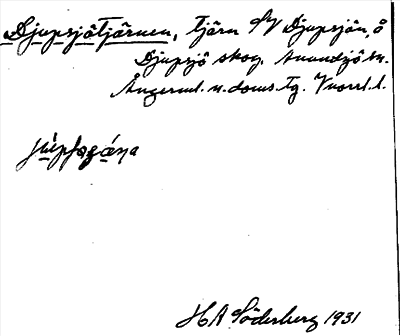 Djupsjötjärnen, tjärn SV Djupsjön, å
Djupsjö skog, Anundsjö sn.
Ångerml. n. doms. tg. Vnorrl. l.
H A Söderberg 1931